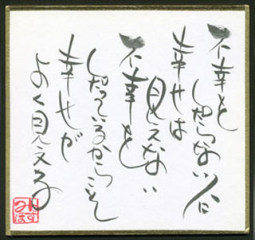 不幸を
しらない人に
幸せは
見えない
不幸を
しっているからこそ
幸せが
よく見える